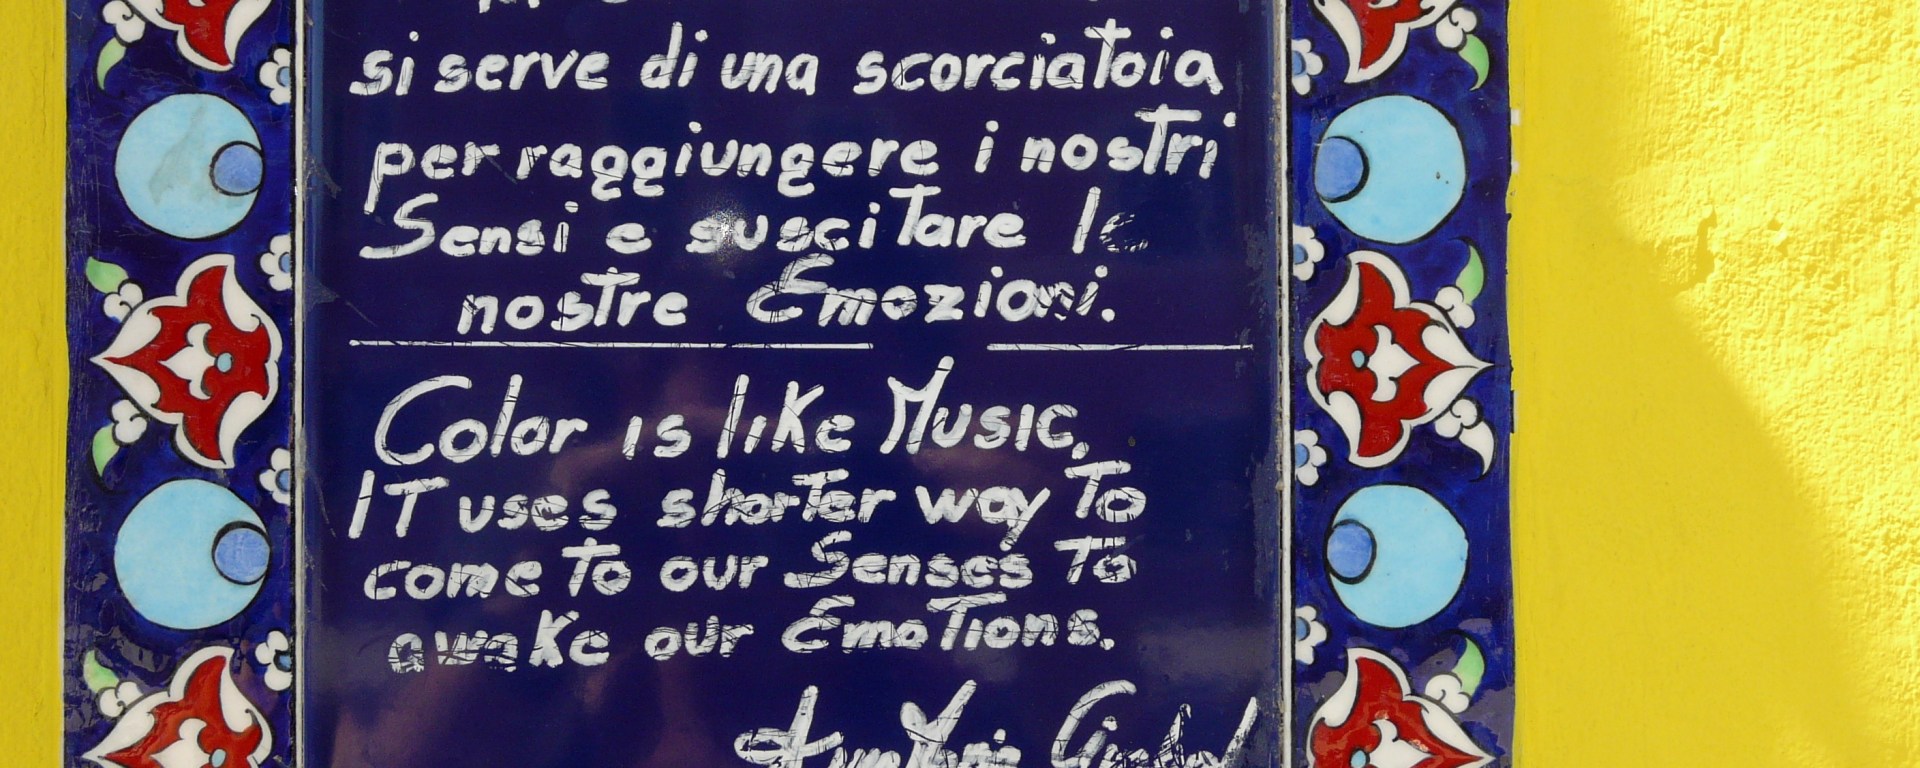 si serve di una scorciatoia
per raggiungere i nostri
Sensi e suscitare le
nostre Emozioni.
Color is like Music,
IT uses shorter way To
come To our Senses To
awake our Emotions.